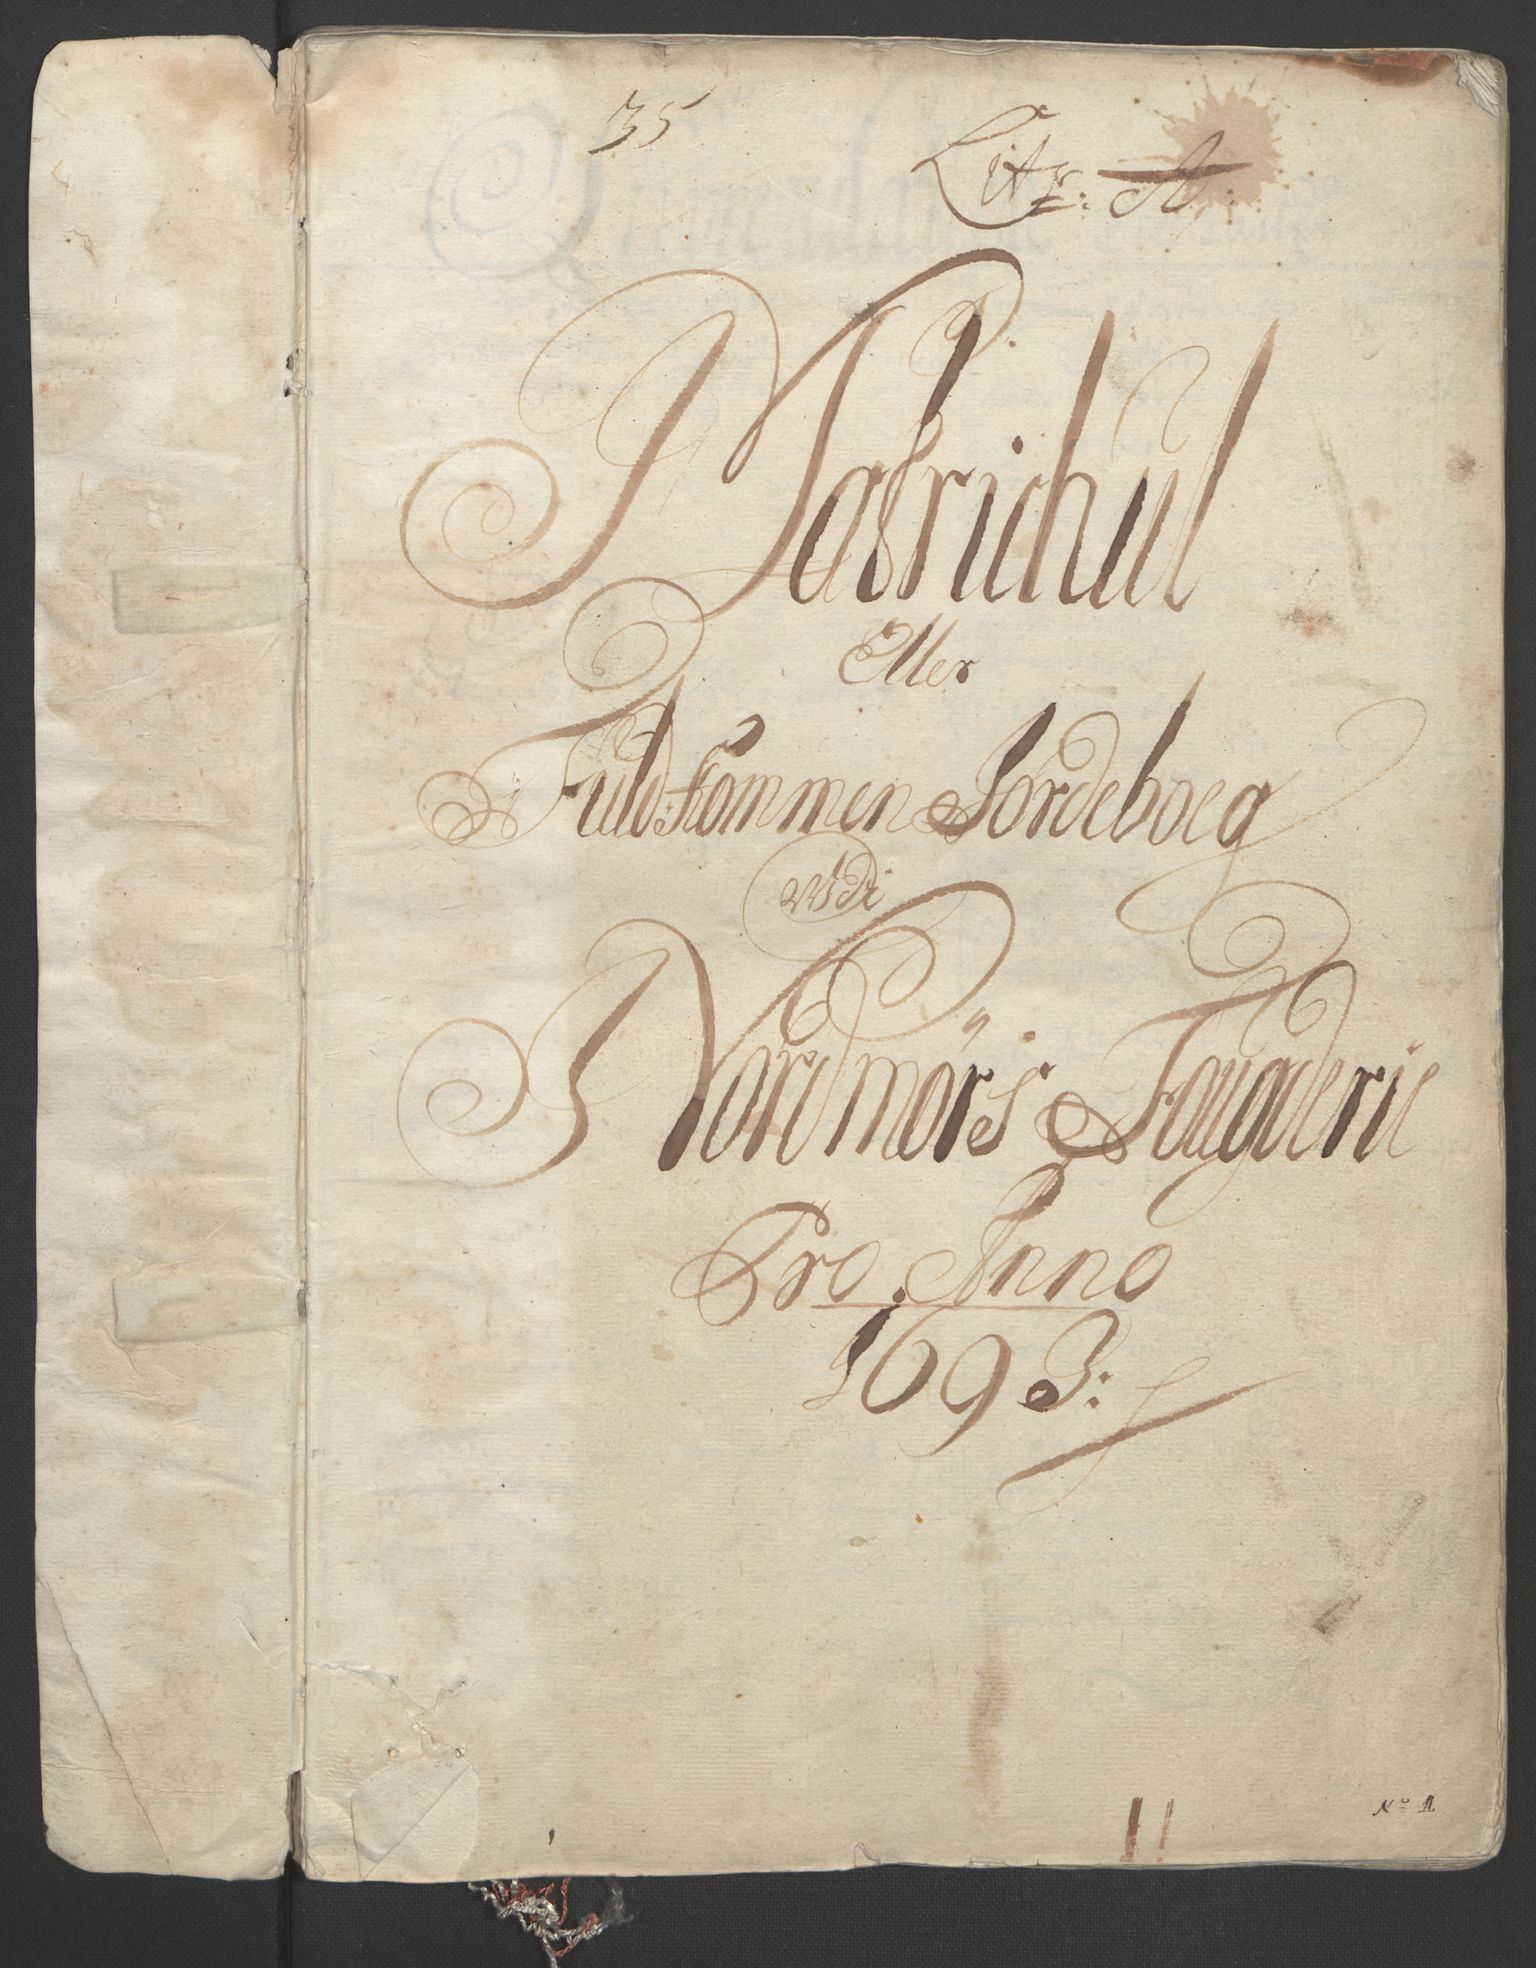 35
Litr: A.
Matrichul
Eller
Fuldkommen Jordeboeg
udi
Nordmørs Faugderie
Pro Anno
1693:
No 1